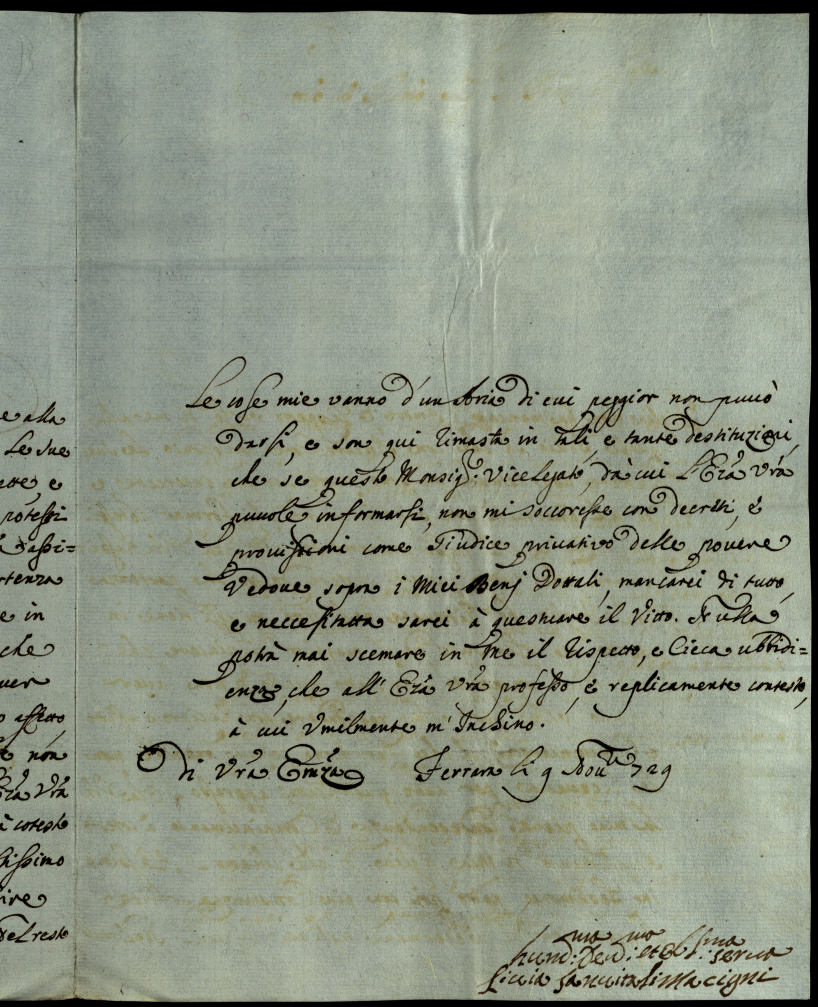 e alla
Le sue
ette e
rotessi
assi=
rtenza
e in
che
uer
o affetto
e non
Eza Vra
à cotesto
tissimo
ire
del resto
Le cose mie vanno d'un Aria di cui peggior non puuò
darsi, e son qui rimasta in tali e tante destituzioni,
che se questo Monsigr. Vicelegato, da cui L'Eza Vra
puuole informarsi, non mi soccoresse con decreti, e
provissioni come Giudice privativo delle povere
Vedove sopra i Miei Benj Dottali, mancarei di tutto,
e neccessitatta sarei à questuare il Vitto. Nulla
potrà mai scemare in me il rispetto, e Cieca ubbidi=
enza, che all' Eza Vra professo, e replicamente contesto,
à cui Vmilmente m' Inchino.
Di Vra Emza Ferrara li 9 Nove 729
ma ma
Hum: Dev: et Obl:ma serva
Licinia Sanvitali Macigni